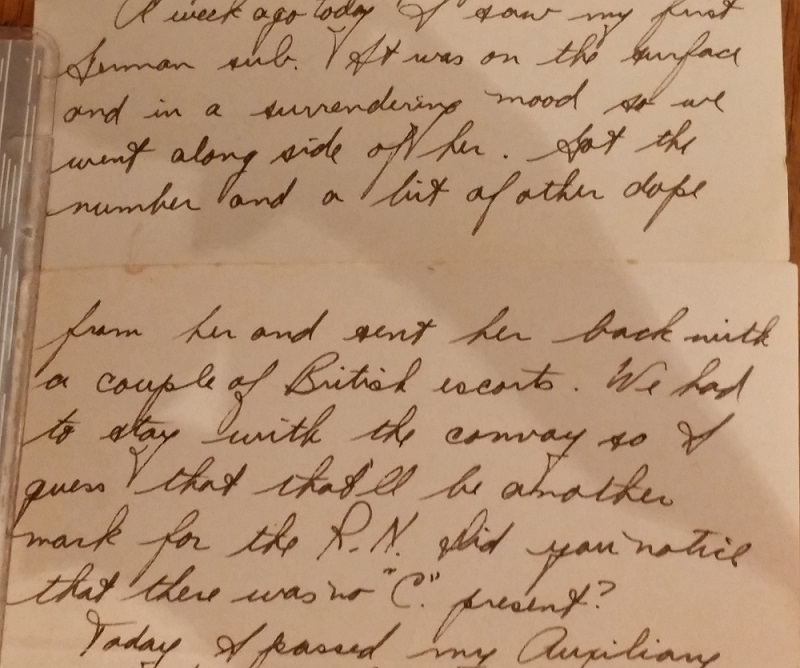 A week ago today I saw my first
German sub. It was on the surface
and in a surrendering mood so we
went along side of her. Got the
number and a bit of other dope
from her and sent her back with
a couple of British escorts. We had
to stay with the convoy so I
guess that that'll be another
mark for the R.N. Did you notice
that there was no "C." present?
Today I passed my Auxiliary